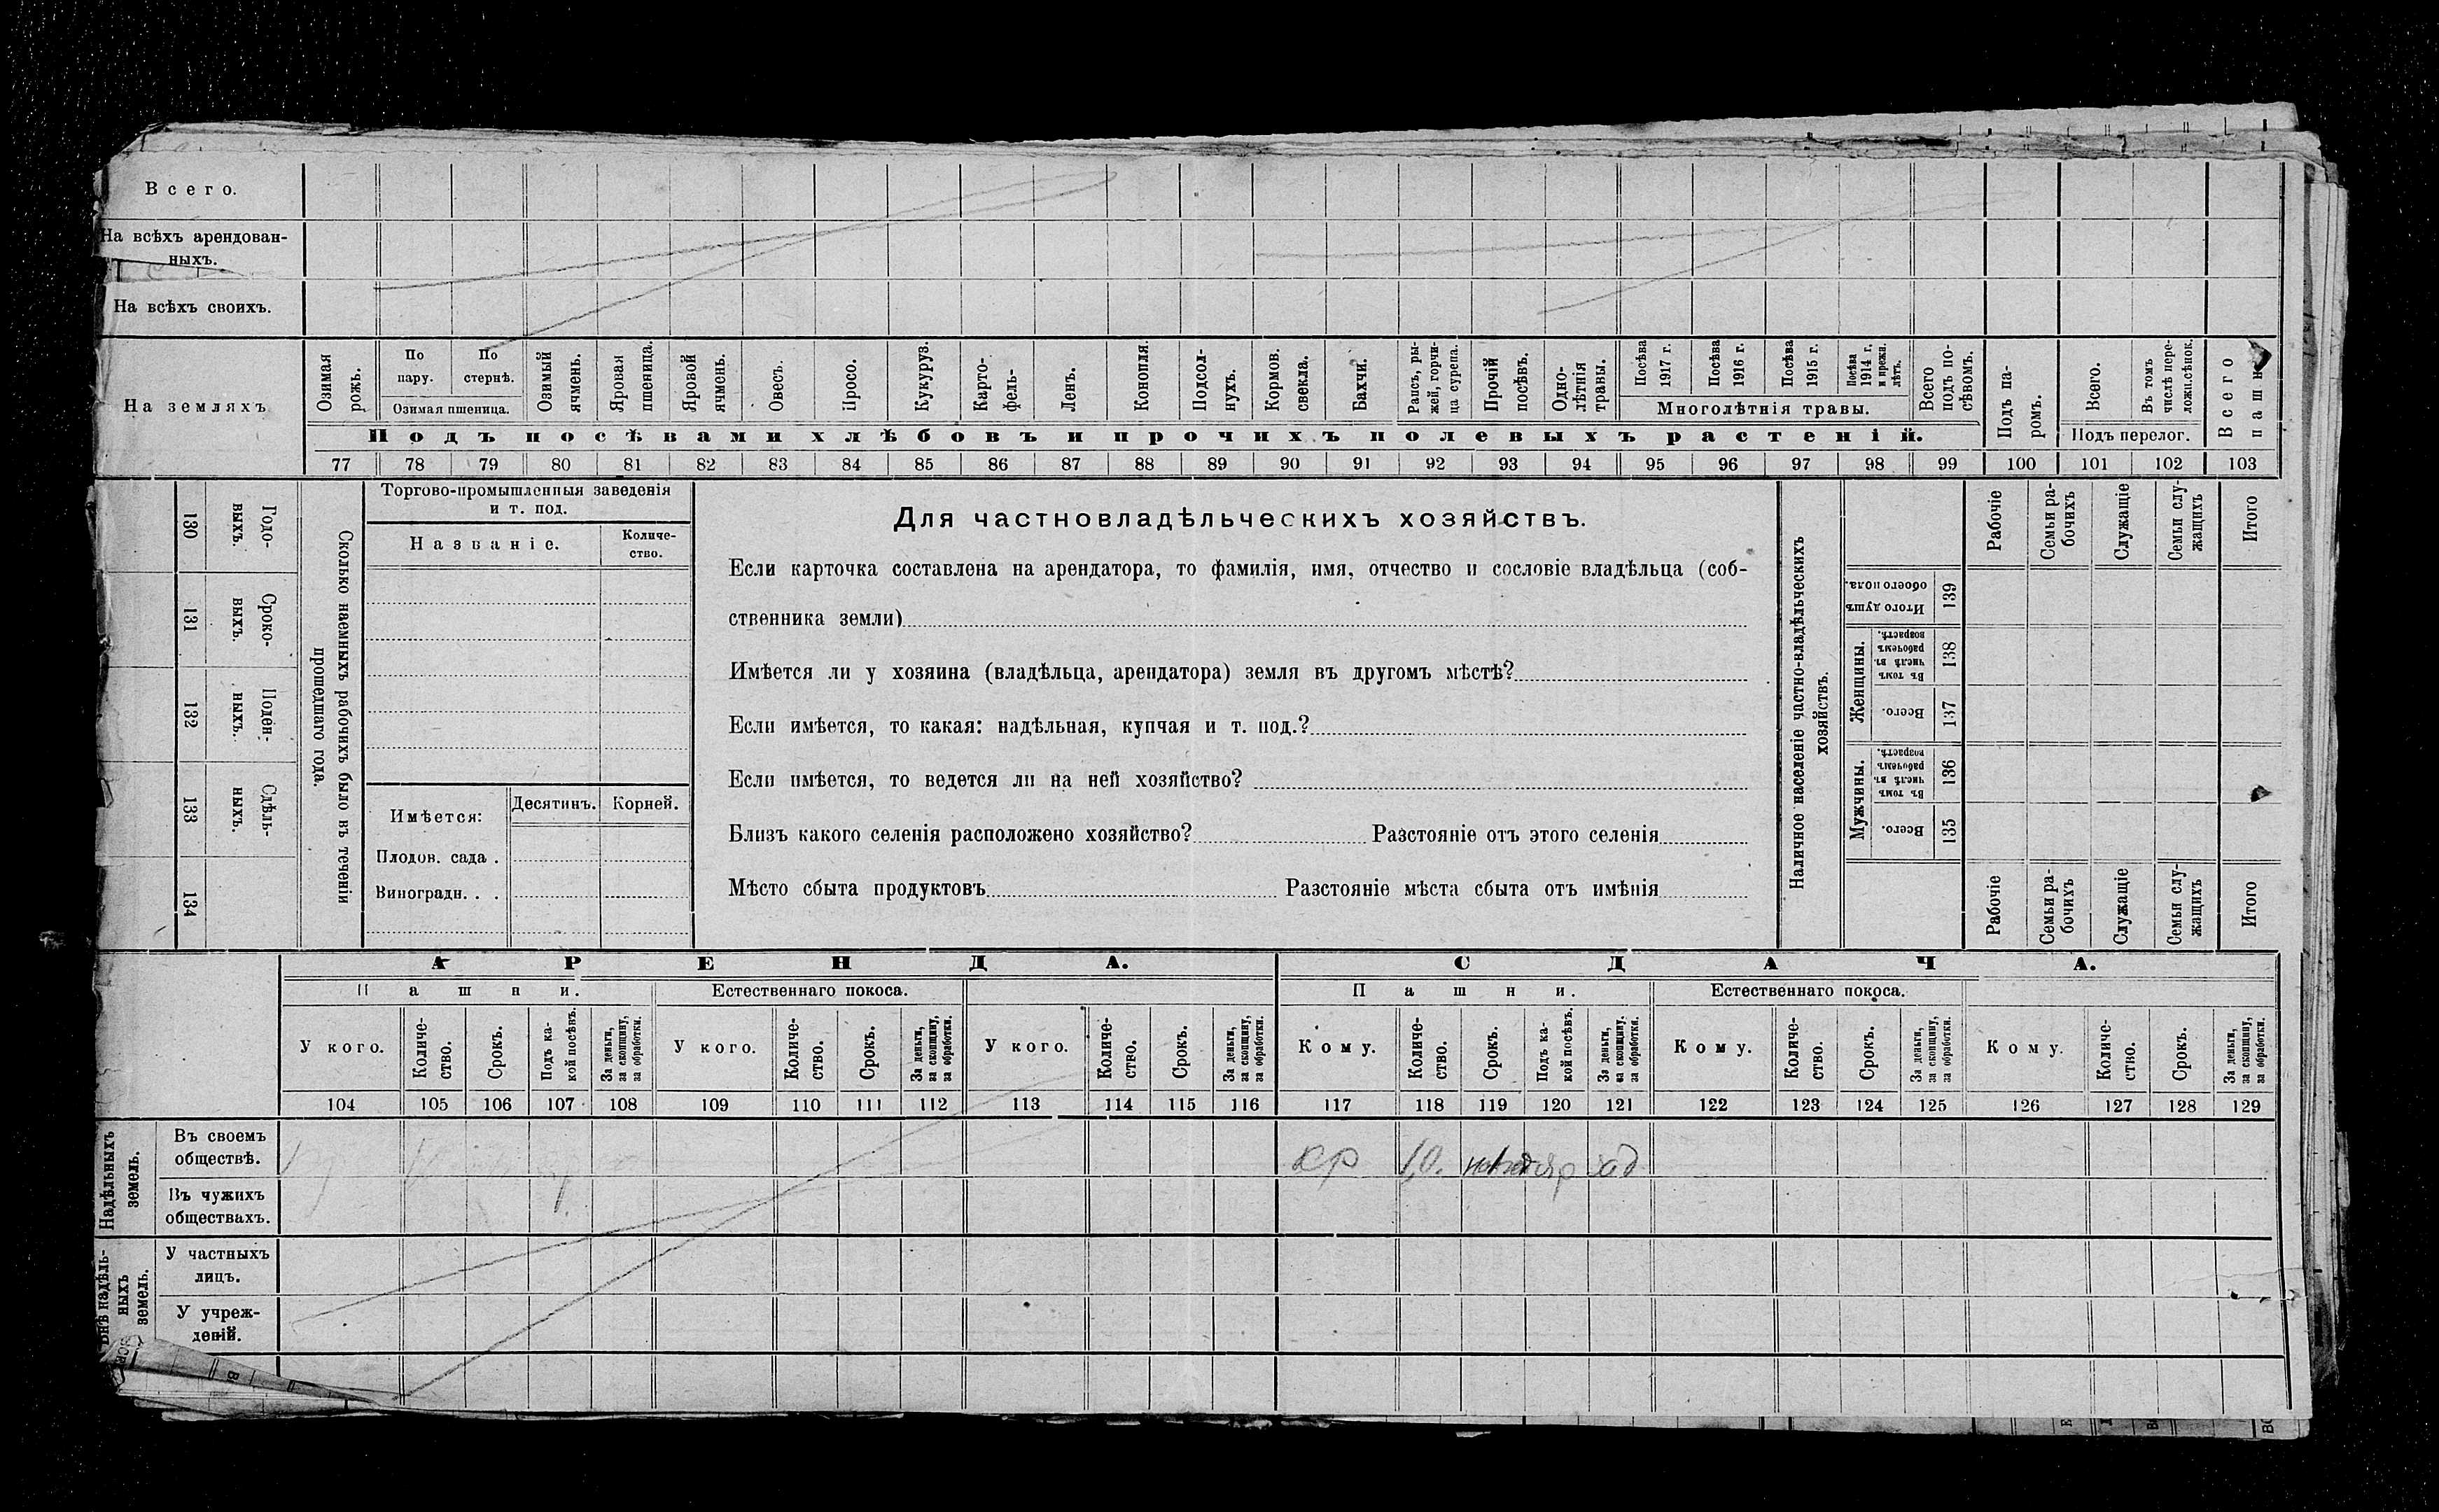 Всего.
На всѣхъ арендован-
ныхъ.
На всѣхъ своихъ.
На земляхъ
Озимая рожь.
По пару.
По стернѣ.
Озимая пшеница.
Озимый ячмень.
Яровая пшеница.
Яровой ячмень.
Овесъ.
Просо.
Кукуруз.
Карто-
фель-
Ленъ.
Конопля.
Подсол-
нухъ.
Кормов. свекла.
Бахчи.
Рапсъ, ры-
жей, горчи-
ца сурепа.
Прочій посѣвъ.
Одно-
лѣтнія
травы.
Посѣва 1917 г.
Посѣва 1916 г.
Посѣва 1915 г.
Посѣва 1914 г. и прежн. лѣтъ.
Многолѣтнія травы.
Всего подъ по-
сѣвомъ.
Подъ посѣвами хлѣбовъ и прочихъ полевыхъ растеній.
Подъ па-
ромъ.
Всего.
Въ томъ числѣ пере-
ложн.сѣнок.
Подъ перелог.
Всего пашни
77 78 79 80 81 82 83 84 85 86 87 88 89 90 91 92 93 94 95 96 97 98 99 100 101 102 103
130
Годо-
выхъ.
131
Сроко-
выхъ.
132
Поден-
ныхъ.
133
Сдѣль-
ныхъ.
134
Сколько наемныхъ рабочихъ было въ теченіи
прошедшаго года.
Торгово-промышленныя заведенія
и т. под.
Названіе.
Количе-
ство.
Имѣется:
Десятинъ.
Корней.
Плодов. сада .
Виноградн. . .
Для частновладѣльческихъ хозяйствъ.
Если карточка составлена на арендатора, то фамилія, имя, отчество и сословіе владѣльца (соб-
ственника земли)
Имѣется ли у хозяина (владѣльца, арендатора) земля въ другомъ мѣстѣ?
Если имѣется, то какая: надѣльная, купчая и т. под.?
Если имѣется, то ведется ли на ней хозяйство?
Близъ какого селенія расположено хозяйство? Разстояніе отъ этого селенія
Мѣсто сбыта продуктовъ Разстояніе мѣста сбыта отъ имѣнія
Наличное населеніе частно-владѣльческихъ
хозяйствъ.
Рабочіе
Семьи ра-
бочихъ
Служащіе
Семьи слу-
жащихъ
Итого
Итого душъ
обоего пола.
139
Женщины.
Въ томъ числѣ въ рабочемъ возрастѣ.
138
Всего.
137
Мужчины.
Въ томъ числѣ въ рабочемъ возрастѣ.
136
Всего.
135
Рабочіе
Семьи ра-
бочихъ
Служащіе
Семьи слу-
жащихъ
Итого
АРЕНДА.
СДАЧА.
Пашни.
Естественнаго покоса.
Пашни.
Естественнаго покоса.
У кого.
Количе-
ство.
Срокъ.
Подъ ка-
кой посѣвъ.
За деньги,
за скопщину,
за обработки.
У кого.
Количе-
ство.
Срокъ.
За деньги,
за скопщину,
за обработки.
У кого.
Количе-
ство.
Срокъ.
За деньги,
за скопщину,
за обработки.
Кому.
Количе-
ство.
Срокъ.
Подъ ка-
кой посѣвъ.
За деньги,
за скопщину.
за обработки.
Кому.
Количе-
ство.
Срокъ.
За деньги,
за скопщину,
за обработки.
Кому.
Количе-
ство.
Срокъ.
За деньги,
за скопщину,
за обработки.
104 105 106 107 108 109 110 111 112 113 114 115 116 117 118 119 120 121 122 123 124 125 126 127 128 129
Надѣльныхъ
земель.
Въ своемъ
обществѣ.
кр
Въ чужихъ
обществахъ.
Внѣ надѣль-
ныхъ
земель.
У частныхъ
лицъ.
У учреж-
деній.